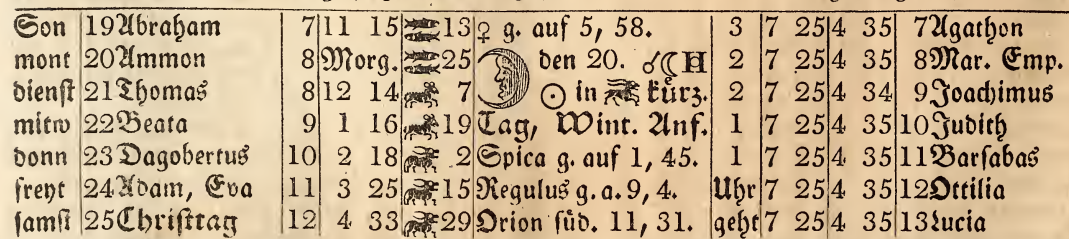 Son 19 Abraham 7 11 15 13 ♀ g. auf 5, 58. 3 7 25 4 35 7 Agathon
mont 20 Ammon 8 Morg. 25 den 20. ☌☾♅ 2 7 25 4 35 8 Mar. Emp.
dienst 21 Thomas 8 12 14 7 ☉ in kürz. 2 7 25 4 34 9 Joachimus
mitw 22 Beata 9 1 16 19 Tag, Wint. Anf. 1 7 25 4 35 10 Judith
donn 23 Dagobertus 10 2 18 2 Spica g. auf 1, 45. 1 7 25 4 35 11 Barsabas
freyt 24 Adam, Eva 11 3 25 15 Regulus g. a. 9, 4. Uhr 7 25 4 35 12 Ottilia
samst 25 Christtag 12 4 33 29 Orion süd. 11, 31. geht 7 25 4 35 13 Lucia